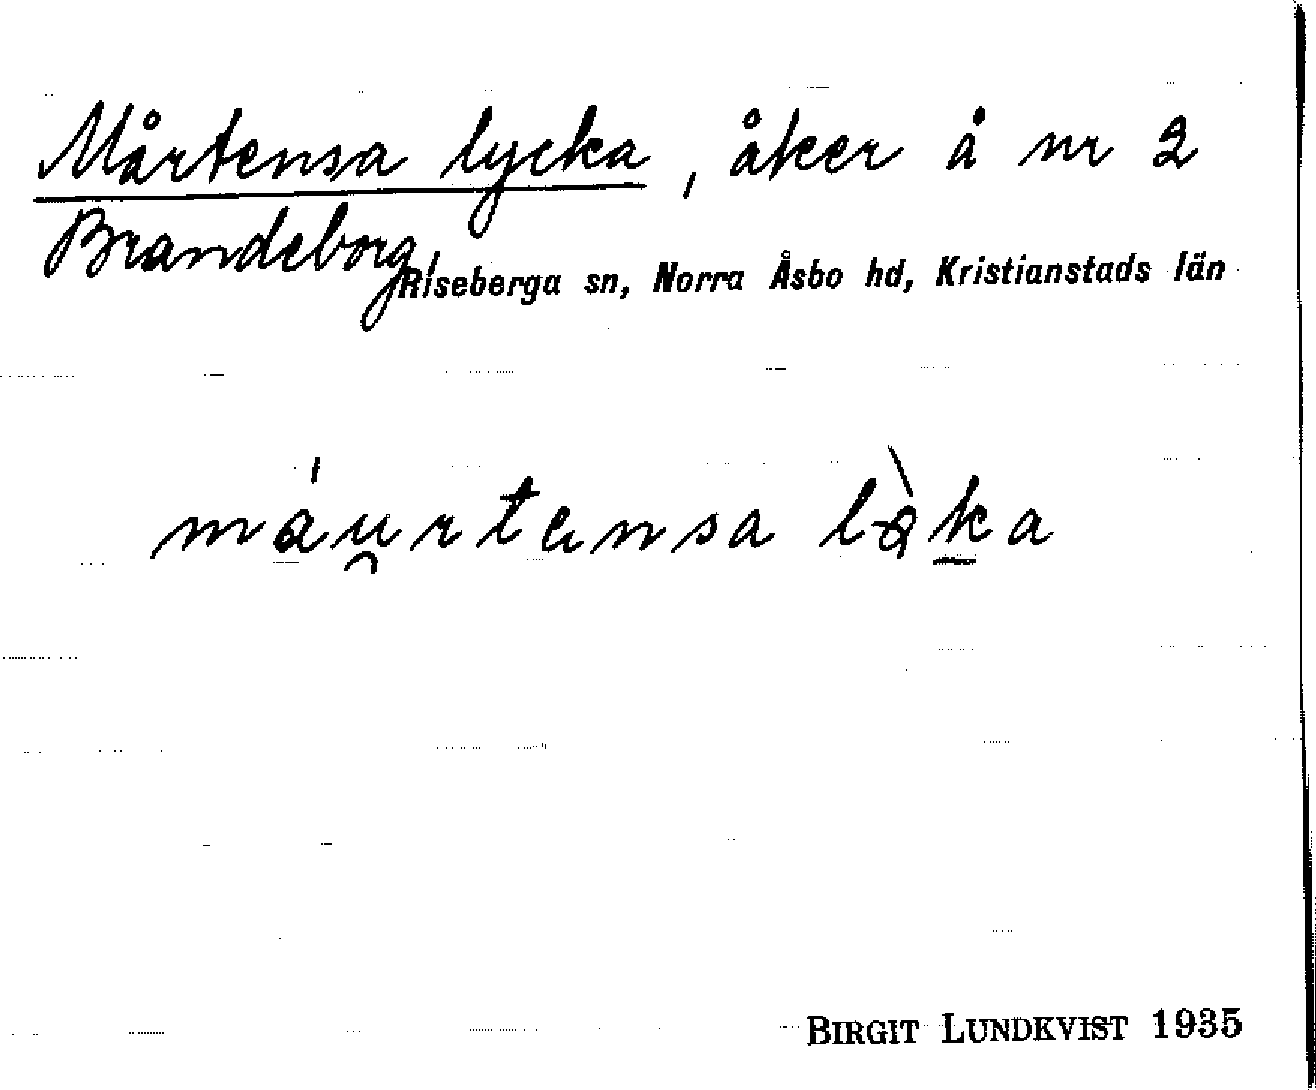 Mårtensa lycka, åker å nr 2
Brandeborg, Riseberga sn, Norra Åsbo hd, Kristianstads län
máu̯rtensa lø̀k̲a
BIRGIT LUNDKVIST 1935